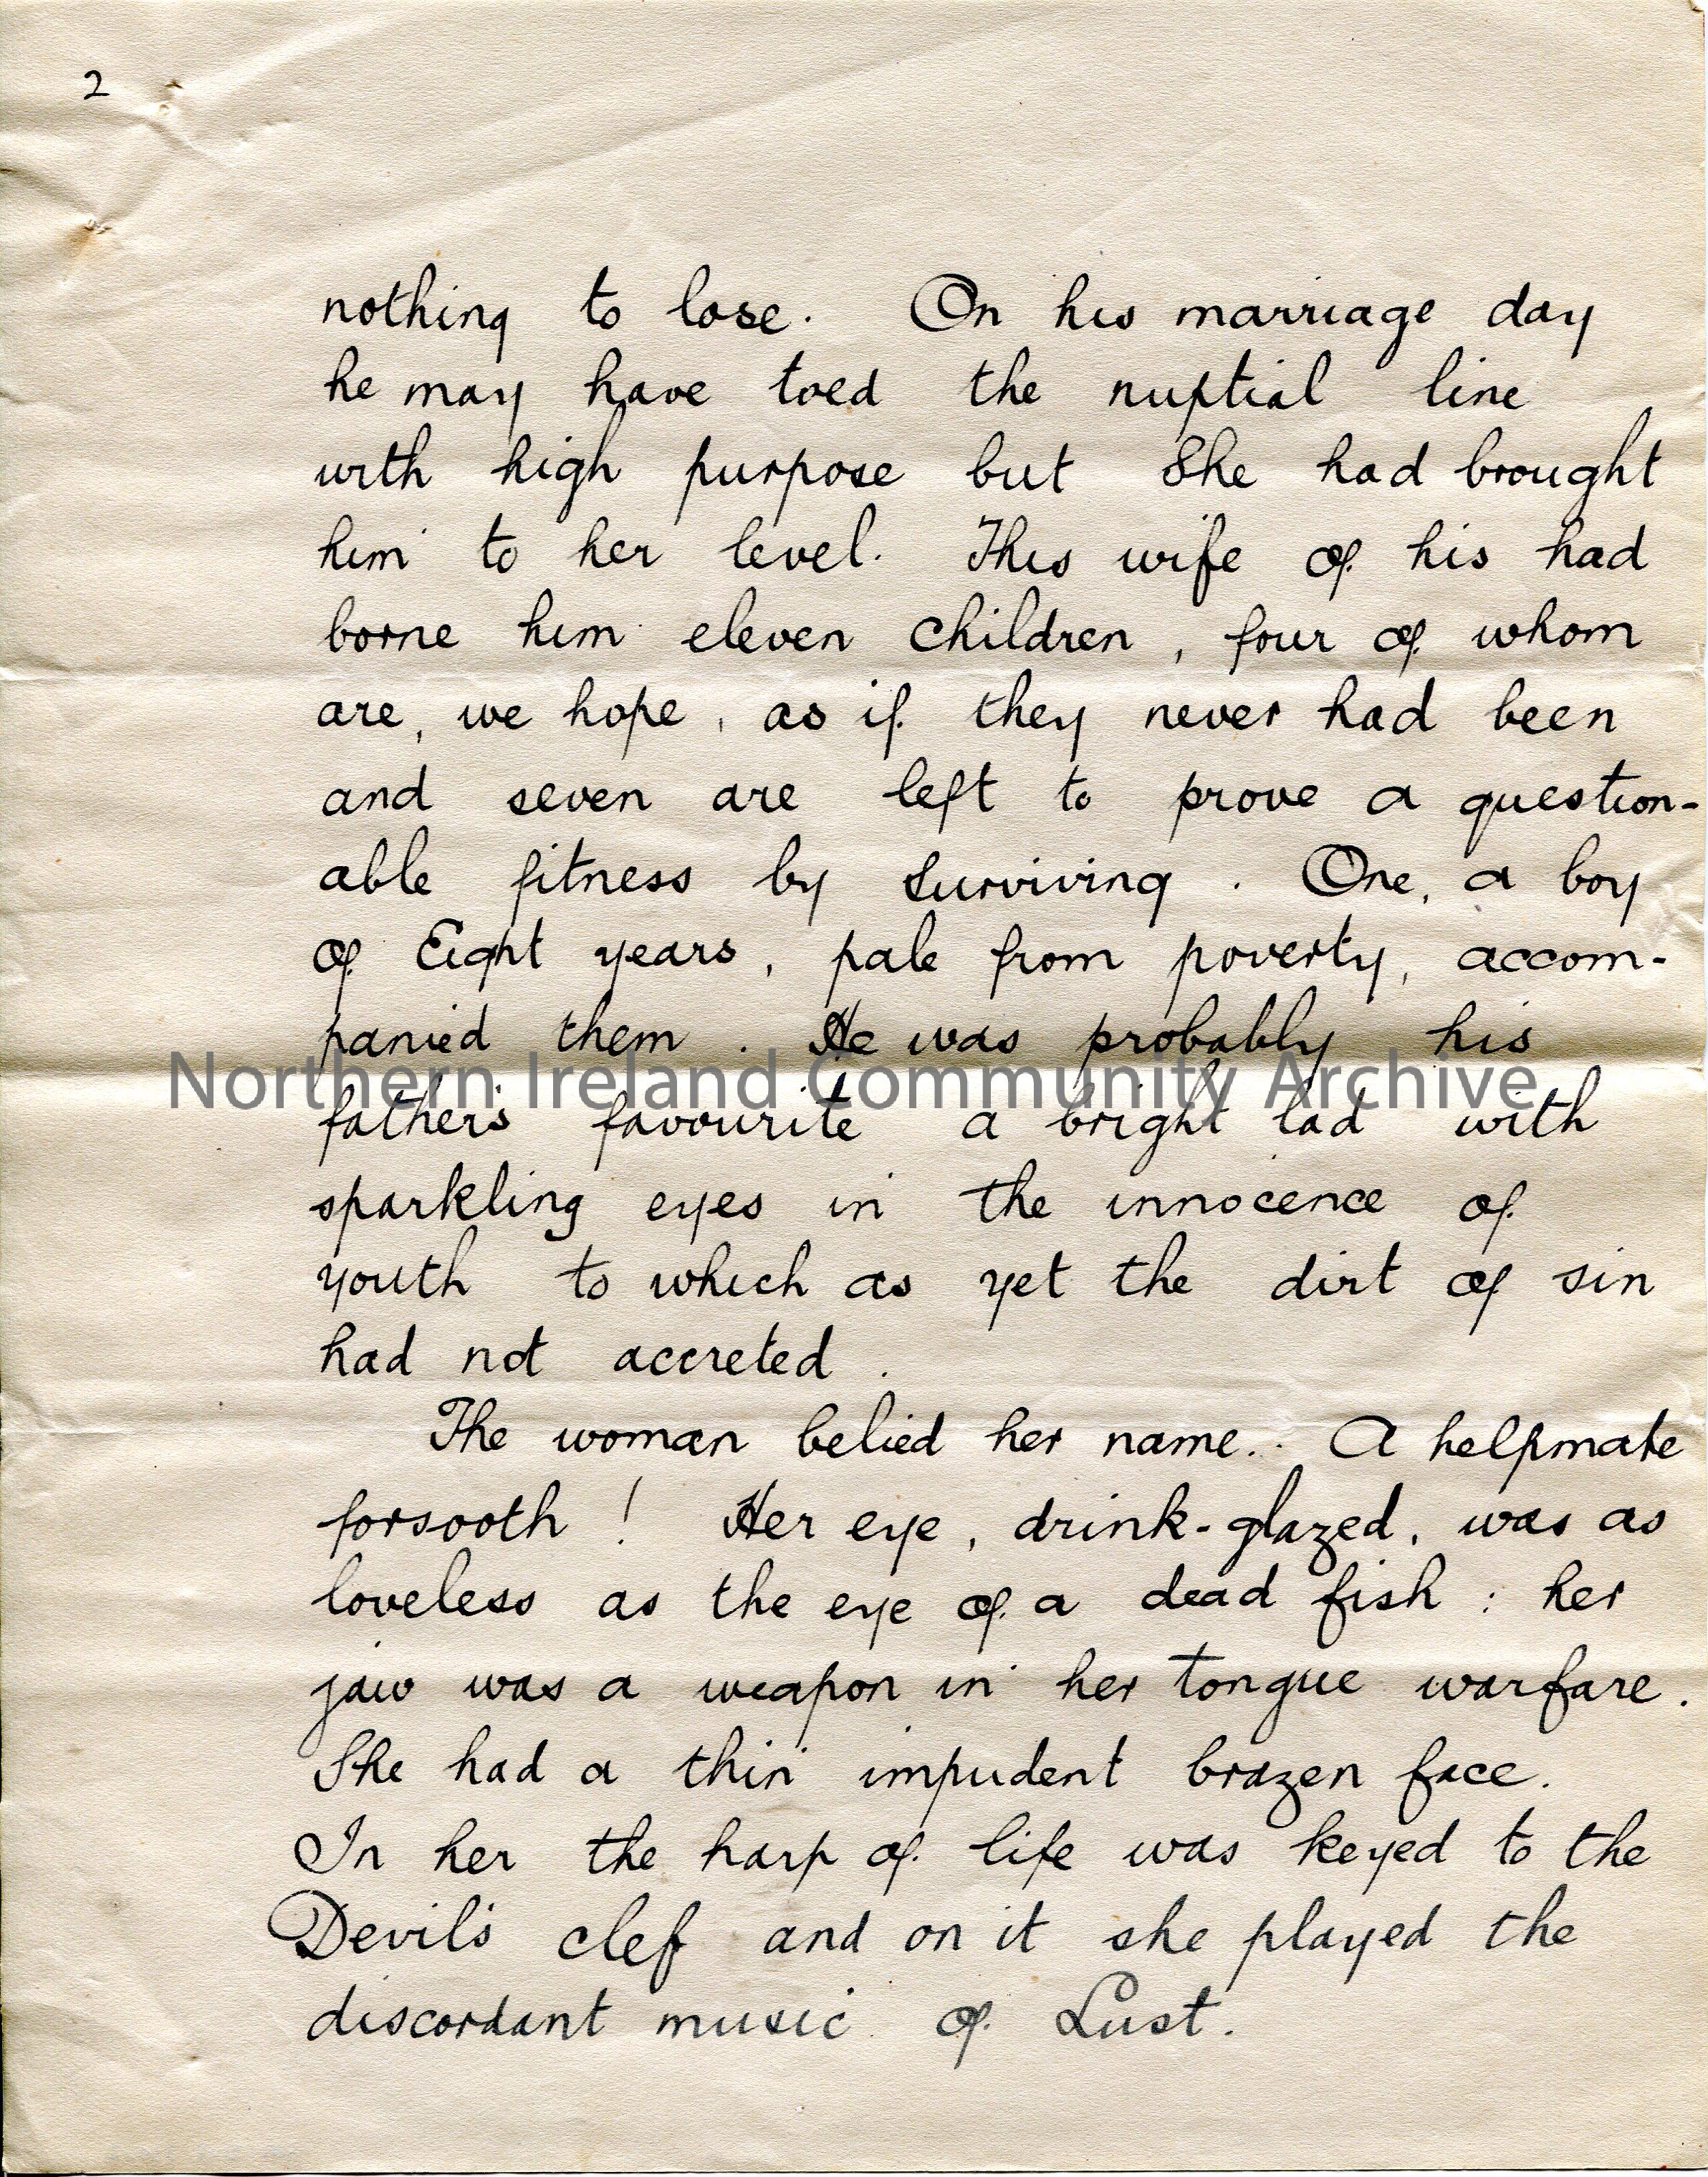 2
nothing to lose. On his marriage day
he may have toed the nuptial line
with high purpose but She had brought
him to her level. This wife of his had
borne him eleven children, four of whom
are, we hope, as if they never had been
and seven are left to prove a question-
able fitness by surviving. One, a boy
of Eight years, pale from poverty, accom-
panied them. He was probably his
Northern Ireland Community Archive
father's favourite a bright lad with
sparkling eyes in the innocence of
youth to which as yet the dirt of sin
had not accreted.
The woman belied her name.. A helpmate
forsooth! Her eye, drink-glazed, was as
loveless as the eye of a dead fish: her
jaw was a weapon in her tongue warfare.
She had a thin impudent brazen face.
In her the harp of life was keyed to the
Devil's clef and on it she played the
discordant music of Lust.